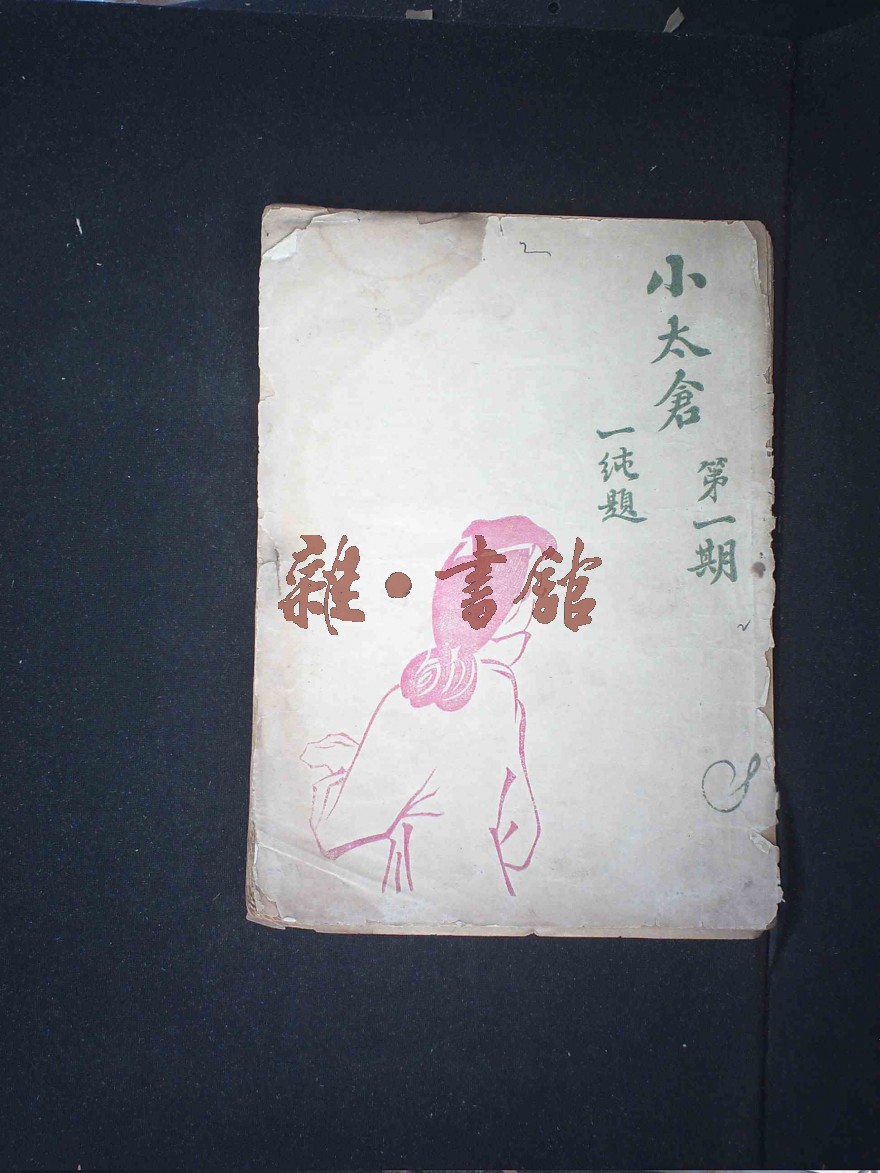 小太倉
第一期
一純題
雜·書館